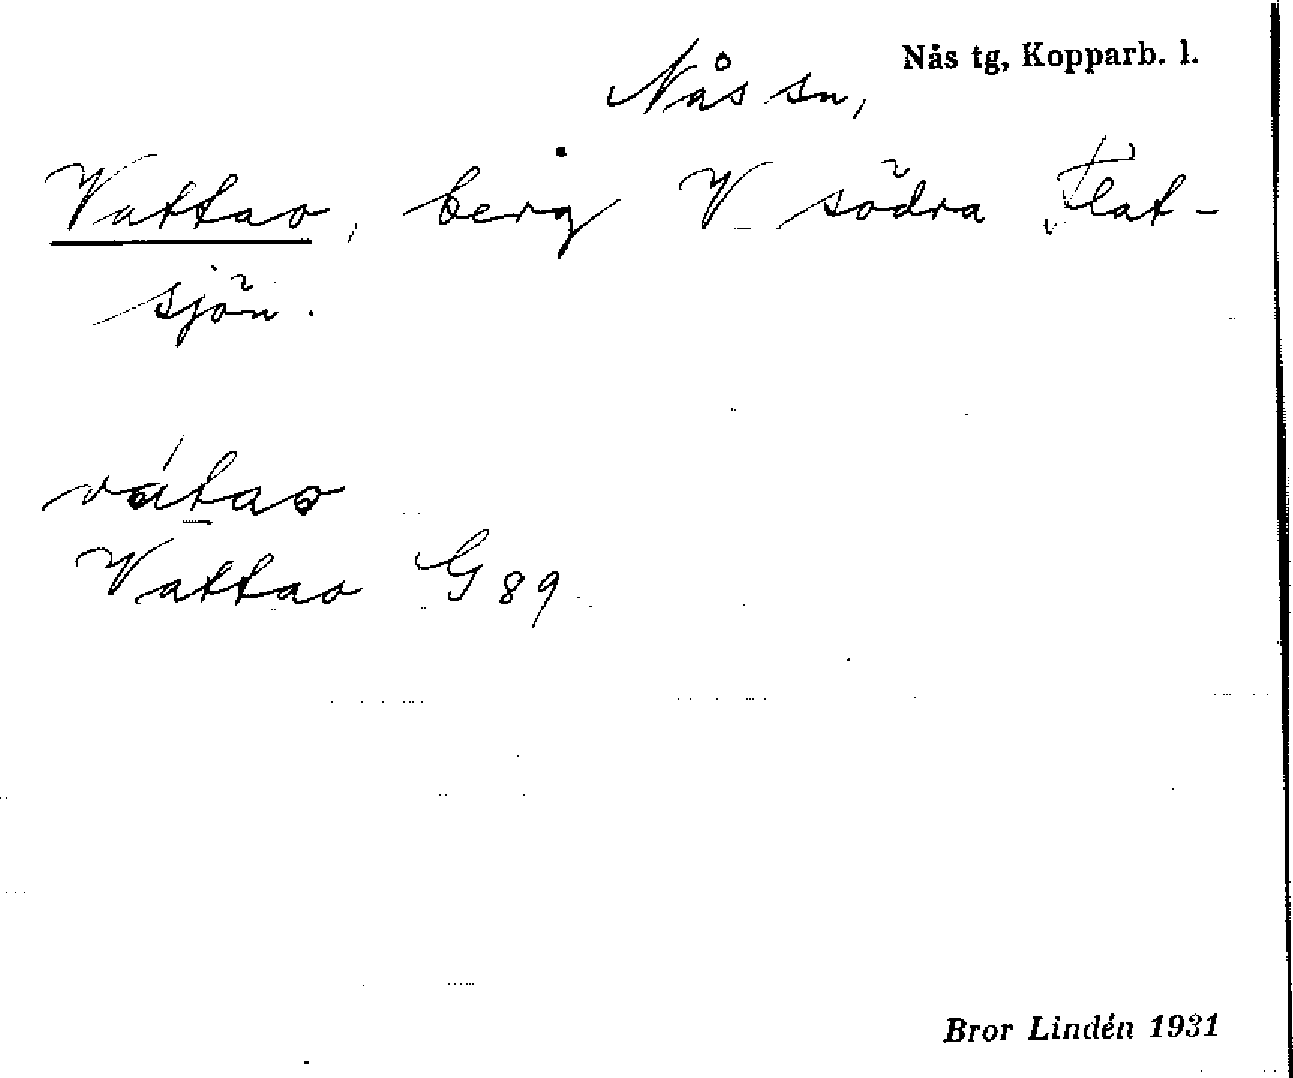 Nås tg, Kopparb. l.
Nås sn,
Vattao, berg V södra Flat-
sjön.
vátao
Vattao G 89
Bror Lindén 1931